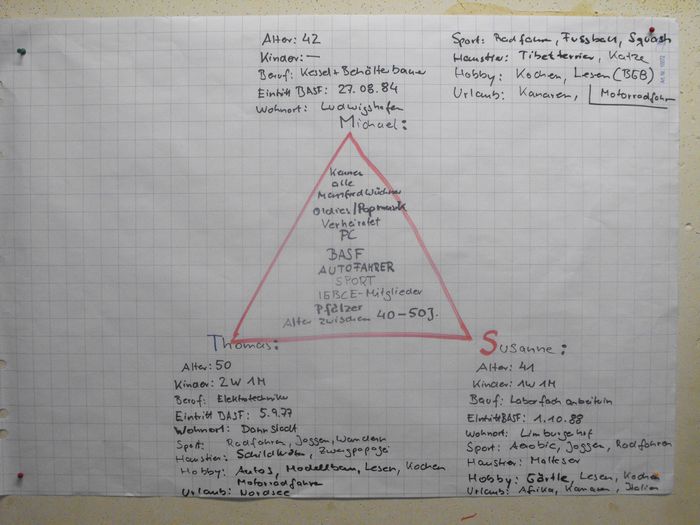 Alter: 42
Kinder: —
Beruf: Kessel + Behälterbauer
Eintritt BASF: 27.08.84
Wohnort: Ludwigshafen
Michael:
Sport: Radfahren, Fussball, Squash
Haustier: Tibetterrier, Katze
Hobby: Kochen, Lesen (BGB)
Urlaub: Kanaren, Motorradfahrn
Kennen
alle
Manfred
Oldies/Popmusik
Verheiratet
PC
BASF
AUTOFAHRER
SPORT
IGBCE-Mitglieder
Pfälzer
Alter zwischen 40-50J.
Thomas:
Alter: 50
Kinder: 2W 1M
Beruf: Elektrotechniker
Eintritt BASF: 5.9.77
Wohnort: Dannstadt
Sport: Radfahren, Joggen, Wandern
Haustier: Schildkröten, Zwergpapagei
Hobby: Autos, Modellbau, Lesen, Kochen
Motorradfahren
Urlaub: Nordsee
Susanne:
Alter: 41
Kinder: 1W 1M
Beruf: Laborfacharbeiterin
Eintritt BASF: 1.10.88
Wohnort: Limburgerhof
Sport: Aerobic, Joggen, Radfahren
Haustier: Malteser
Hobby: Gärtle, Lesen, Kochen
Urlaub: Afrika, Kanaren, Italien